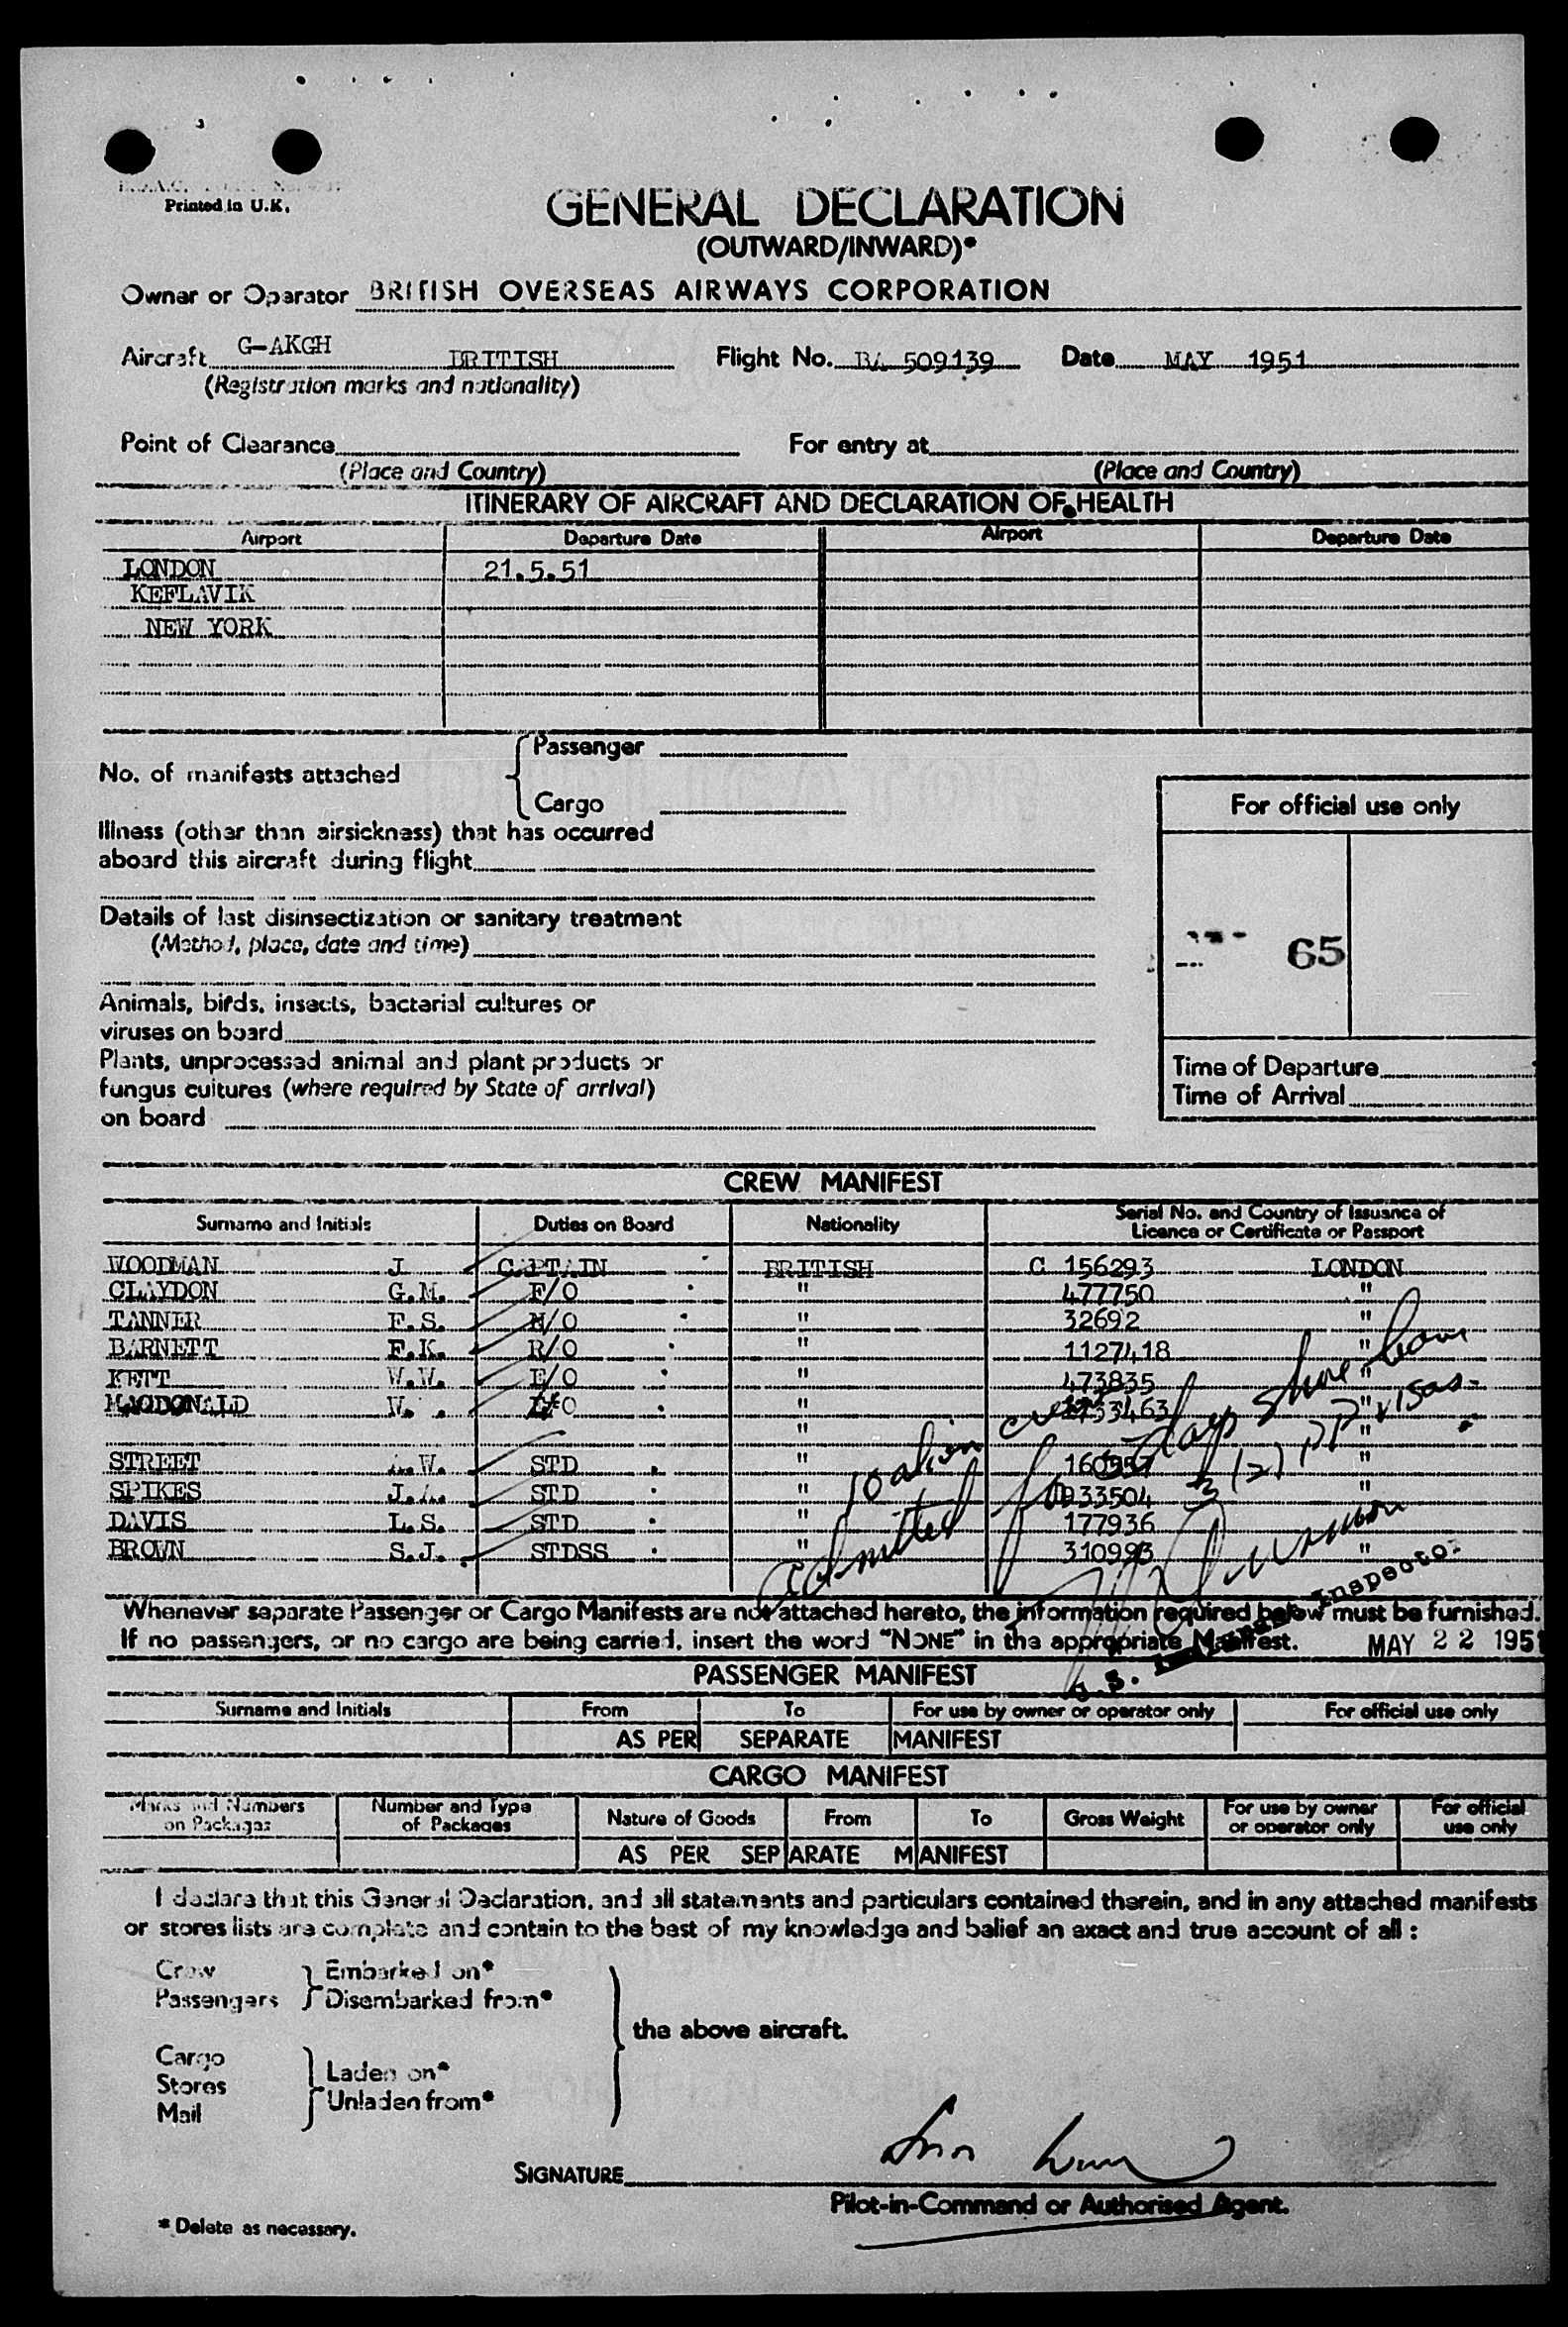 Printed in U.K.
GENERAL DECLARATION
(OUTWARD/INWARD)*
Owner or Operator BRITISH OVERSEAS AIRWAYS CORPORATION
Aircraft G-AKGH BRITISH Flight No. BA 509139 Date MAY 1951
(Registration marks and nationality)
Point of Clearance For entry at
(Place and Country) (Place and Country)
ITINERARY OF AIRCRAFT AND DECLARATION OF HEALTH
Airport Departure Date Airport Departure Date
LONDON 21.5.51
KEFLAVIK
NEW YORK
No. of manifests attached
Passenger
Cargo
Illness (other than airsickness) that has occurred
aboard this aircraft during flight
Details of last disinsectization or sanitary treatment
(Method, place, date and time)
Animals, birds, insects, bacterial cultures or
viruses on board
Plants, unprocessed animal and plant products or
fungus cultures (where required by State of arrival)
on board
For official use only
65
Time of Departure
Time of Arrival
CREW MANIFEST
Surname and Initials Duties on Board Nationality Serial No. and Country of Issuance of
Licence or Certificate or Passport
WOODMAN J CAPTAIN BRITISH C 156293 LONDON
CLAYDON G.M. F/O " 477750 "
TANNER F.S. N/O " 32692 "
BARNETT F.K. R/O " 1127418 "
KETT W.W. E/O " 473835 "
MACDONALD W. "
" "
STREET A.W. STD " "
SPIKES J.A. STD " 933504 "
DAVIS L.S. STD " 177936
BROWN S.J. STDSS " 310993 "
10 alien crew
admitted for days shore leave
3(2) PP visas
Inspector
Whenever separate Passenger or Cargo Manifests are not attached hereto, the information required below must be furnished.
If no passengers, or no cargo are being carried, insert the word "NONE" in the appropriate Manifest. MAY 22 195
U.S.
PASSENGER MANIFEST
Surname and Initials From To For use by owner or operator only For official use only
AS PER SEPARATE MANIFEST
CARGO MANIFEST
Marks and Numbers on Packages Number and Type of Packages Nature of Goods From To Gross Weight For use by owner or operator only For official use only
AS PER SEPARATE MANIFEST
I declare that this General Declaration, and all statements and particulars contained therein, and in any attached manifests
or stores lists are complete and contain to the best of my knowledge and belief an exact and true account of all :
Crew Embarked on*
Passengers Disembarked from*
the above aircraft.
Cargo
Stores Laden on*
Mail Unladen from*
SIGNATURE
Pilot-in-Command or Authorised Agent.
* Delete as necessary.